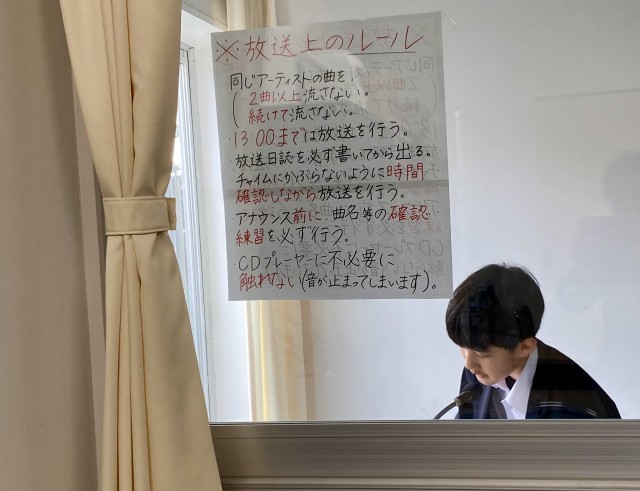 ※放送上のルール
同じアーティストの曲を、
・2曲以上流さない。
・続けて流さない。
・13:00までは放送を行う。
・放送日誌を必ず書いてから出る。
・チャイムにかぶらないように時間
確認しながら放送を行う。
・アナウンス前に、曲名等の確認
練習を必ず行う。
・CDプレーヤーに不必要に
触れない(音が止まってしまいます)。